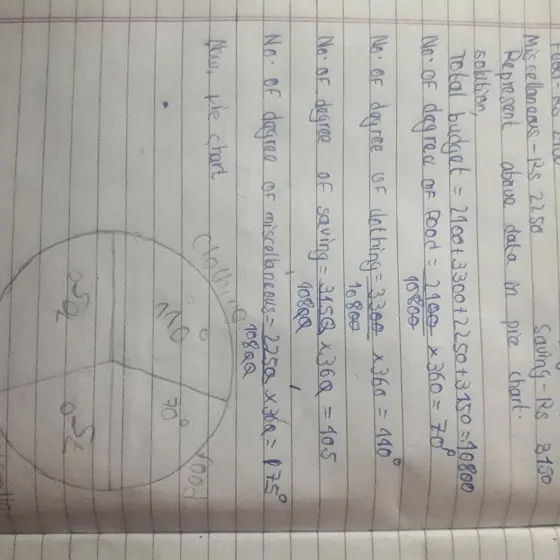 Miscellaneous - Rs 2250 Saving - Rs 3150
Represent above data in pie chart.
solution,
Total budget = 2100+3300+2250+3150=10800
No. of degree of food = 2100/10800 x 360 = 70°
No. of degree of clothing = 3300/10800 x 360 = 110°
No. of degree of saving = 3150/10800 x 360 = 105
No. of degree of miscellaneous = 2250/10800 x 360 = 75°
Now, pie chart
Clothing
food
110°
70°